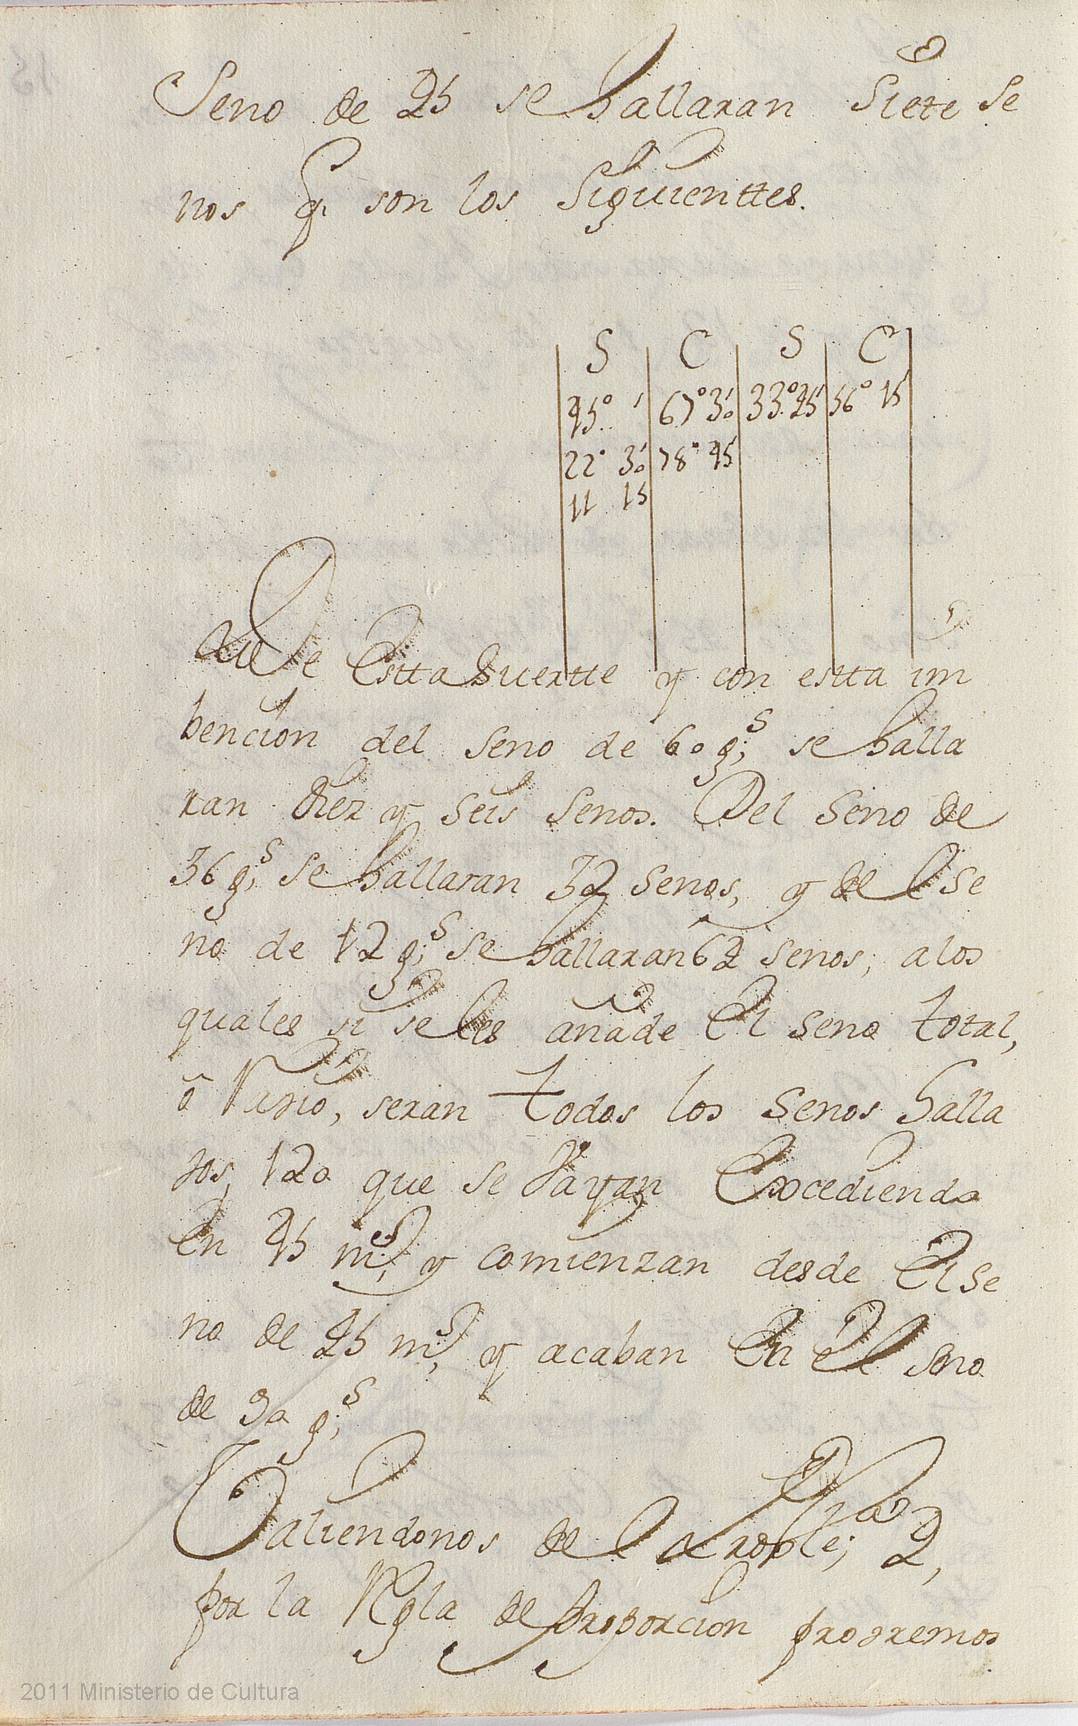 Seno de 45 se hallaran Siete Se
nos q. son los Siguienttes.
S C S C
45° ' 67° 30' 33° 45' 56° 15'
22° 30' 78° 45'
11 15
De Estta Suertte y con estta im
bencion del seno de 60 g.s se halla
ran Diez y seis senos. Del Seno de
36 g.s Se hallaran 32 Senos, y del Se
no de 12 g.s Se hallaran 62 senos, a los
quales si se les añade El seno total,
ô Radio, seran todos los Senos halla
dos 120 que se vayan Excediendo
En 45 m.s y comienzan desde El Se
no de 45 m.s y acaban En El Seno
de 90 g.s
Valiendonos del 2,
por la Regla de Proporcion podremos
2011 Ministerio de Cultura